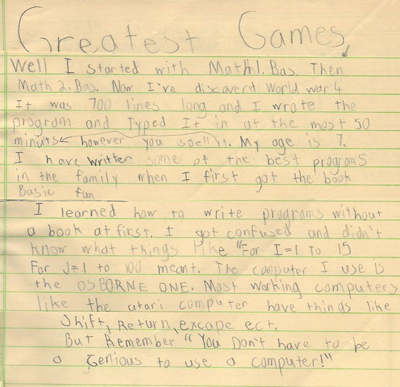 Greatest Games
Well I started with Math1. Bas. Then
Math 2. Bas. Now I've discoverd World war 4
It was 700 lines long and I wrote the
program and Typed It in at the most 50
minuits ← however you spell it. My age is 7.
I have written some of the best programs
in the family when I first got the book
Basic fun
I learned how to write programs without
a book at first. I got confused and didn't
know what things like "For I=1 to 15
For J=1 to 100 meant. The computer I use is
the OSBORNE ONE. Most working computers
like the atari computer have things like
Shift, Return, excape ect.
But Remember "You Don't have to be
a Genious to use a computer!"